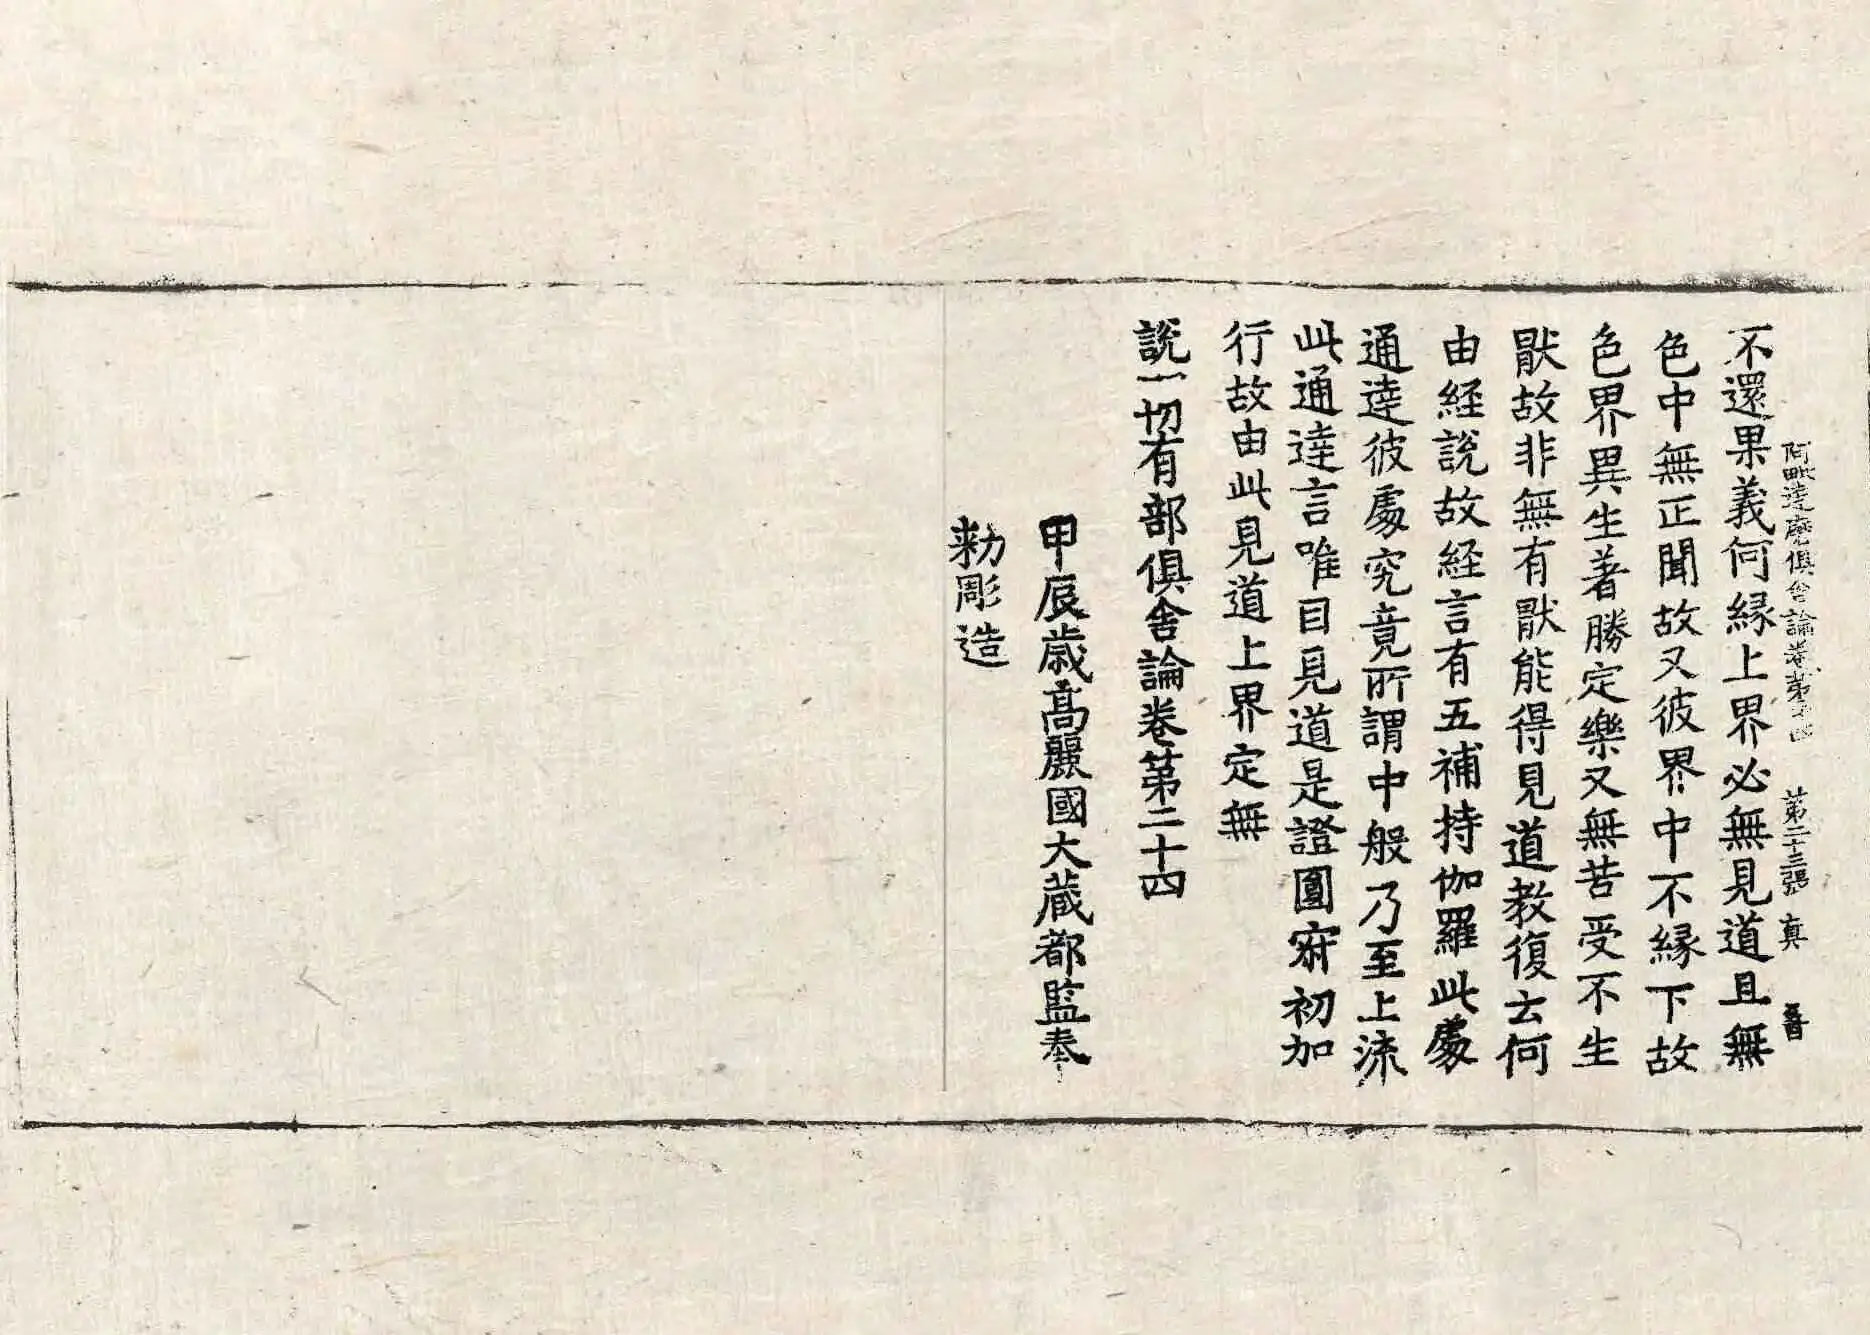 阿毗達磨俱舍論卷第二十四 第二十三張 真
不還果義何緣上界必無見道且無
色中無正聞故又彼界中不緣下故
色界異生著勝定樂又無苦受不生
猒故非無有猒能得見道教復云何
由經說故經言有五補特伽羅此處
通達彼處究竟所謂中般乃至上流
此通達言唯目見道是證圓寂初加
行故由此見道上界定無
說一切有部俱舍論卷第二十四
甲辰歲高麗國大藏都監奉
勑彫造